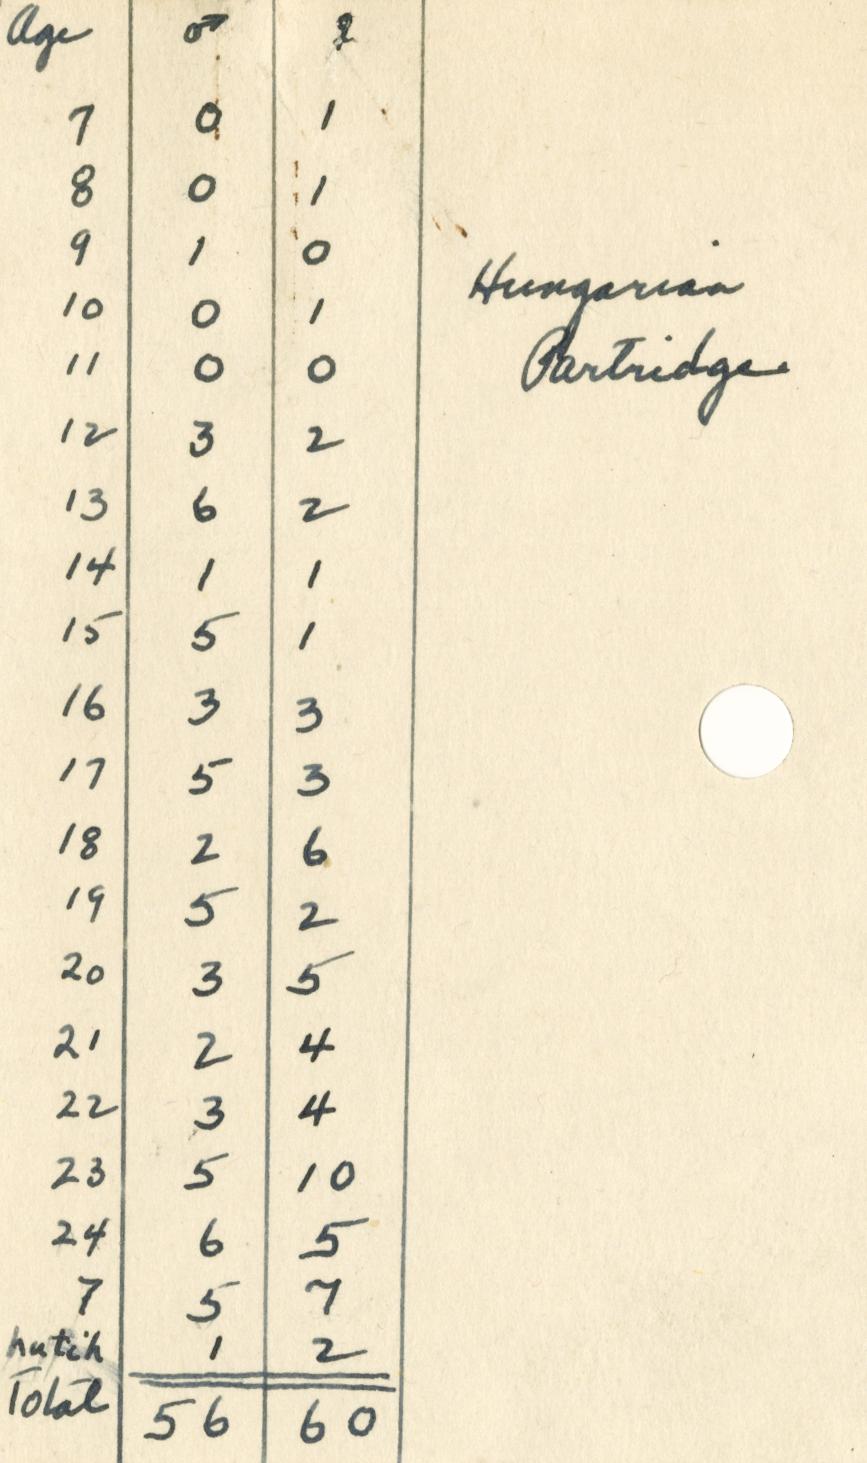 Age ♂ ♀
7 0 1
8 0 1
9 1 0
Hungarian
10 0 1
11 0 0
Partridge
12 3 2
13 6 2
14 1 1
15 5 1
16 3 3
17 5 3
18 2 6
19 5 2
20 3 5
21 2 4
22 3 4
23 5 10
24 6 5
7 5 7
1 2
Total 56 60